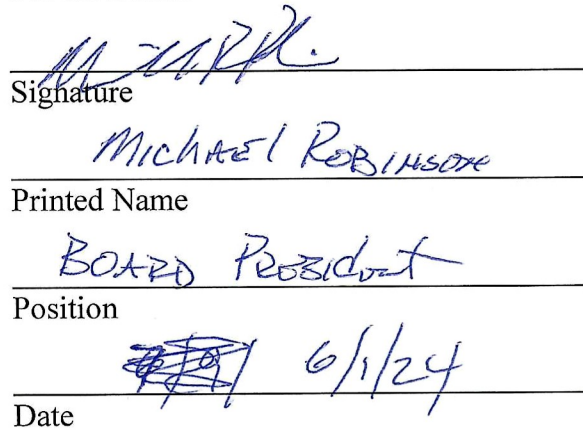 Signature
Michael Robinson
Printed Name
Board President
Position
6/1/24
Date